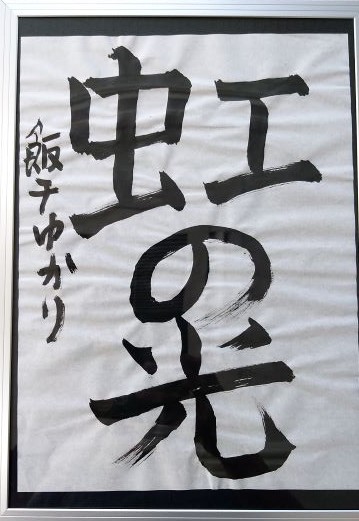 虹の光
飯干ゆかり